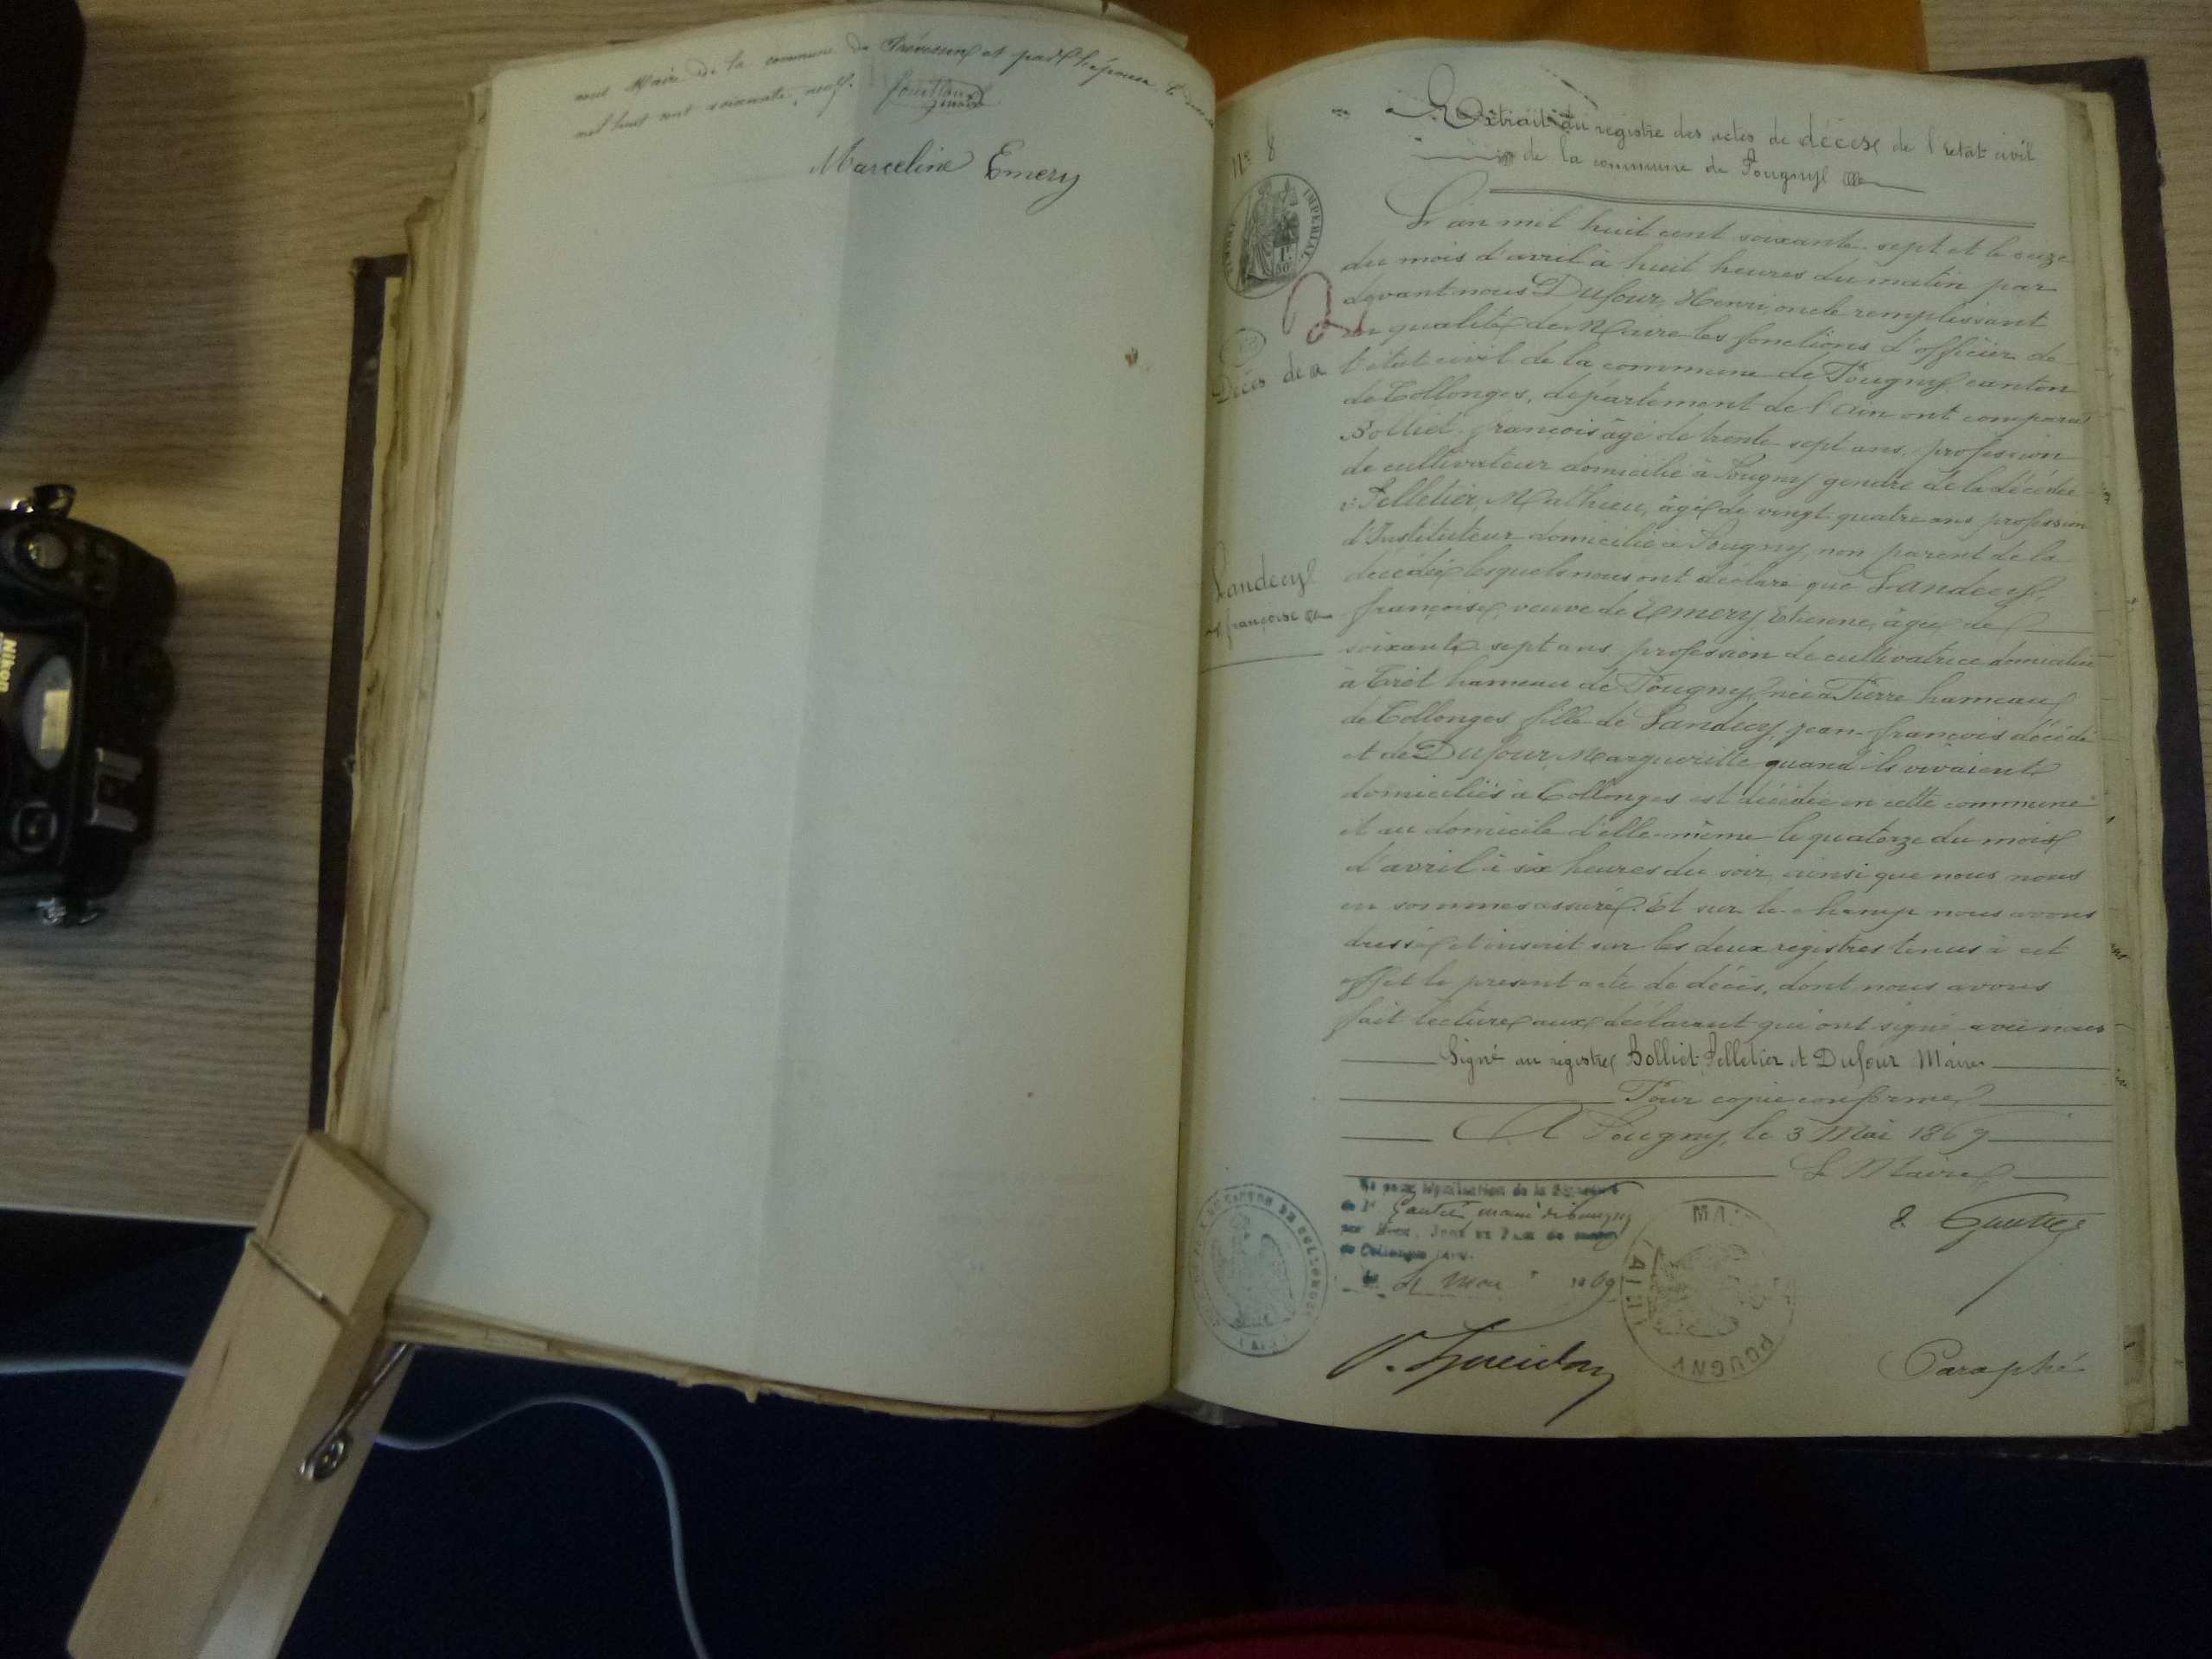 nous Maire de la commune de Prévessin et par l'épouse, le
mil huit cent soixante neuf.
Marceline Emery
Extrait du registre des actes de décès de l'état civil
de la commune de Pougny
N° 8
TIMBRE IMPERIAL
1F
50C
Décès de
Landecy
françoise
L'an mil huit cent soixante-sept et le quinze
du mois d'avril à huit heures du matin par
devant nous Dufour, Henri, oncle remplissant
en qualité de Maire les fonctions d'officier de
l'état civil de la commune de Pougny, canton
de Collonges, département de l'Ain ont comparu
Bolliet françois âgé de trente-sept ans, profession
de cultivateur domicilié à Pougny gendre de la décédée
et Pelletier, Mathieu, âgé de vingt quatre ans profession
d'Instituteur domicilié à Pougny, non parent de la
décédée, lesquels nous ont déclaré que Landecy,
françoise, veuve de Emery, Etienne, âgée de
soixante-sept ans profession de cultivatrice domiciliée
à Crêt hameau de Pougny, née à Pierre hameau
de Collonges fille de Landecy, jean-françois décédé
et de Dufour Margueritte quand ils vivaient
domiciliés à Collonges est décédée en cette commune
et au domicile d'elle-même le quatorze du mois
d'avril à six heures du soir, ainsi que nous nous
en sommes assuré. Et sur le-champ nous avons
dressé et inscrit sur les deux registres tenus à cet
effet le présent acte de décès, dont nous avons
fait lecture aux déclarant qui ont signé avec nous
Signé au registre Bolliet, Pelletier et Dufour Maire
Pour copie conforme
A Pougny, le 3 Mai 1869
Le Maire
Vu pour légalisation de la Signature
de Mr Gautier maire de Pougny
par Nous, Juge de Paix du canton
de Collonges (Ain).
Le 4 Mai 1869
CANTON DE COLLONGES
(AIN)
MAIRIE
POUGNY
(AIN)
Paraphé
Nikon